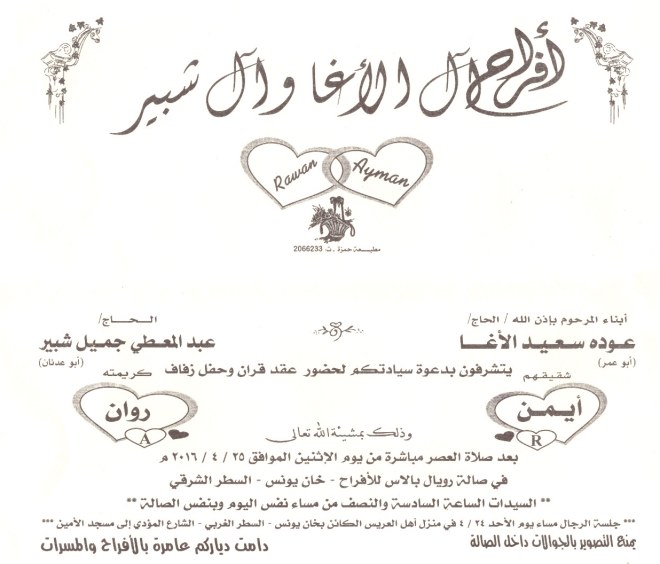 أفراح آل الأغا وآل شبير
Rawan Ayman
مطبعة حمزة . ت 2066233
أبناء المرحوم بإذن الله / الحاج/
الحـــاج/
عـوده سـعـيـد الأغـــا
عبد المعطي جميل شبير
(أبو عمر)
(أبو عدنان)
يتشرفون بدعوة سيادتكم لحضور عقد قران وحفل زفاف
شقيقهم
كريمته
أيمـن
روان
R
A
وذلك بمشيئة الله تعالى
بعد صلاة العصر مباشرة من يوم الإثنين الموافق ٢٥ / ٤ / ٢٠١٦ م
في صالة رويال بالاس للأفراح - خان يونس - السطر الشرقي
** السيدات الساعة السادسة والنصف من مساء نفس اليوم وبنفس الصالة **
*** جلسة الرجال مساء يوم الأحد ٢٤ / ٤ في منزل أهل العريس الكائن بخان يونس - السطر الغربي - الشارع المؤدي إلى مسجد الأمين ***
يمنع التصوير بالجوالات داخل الصالة
دامت دياركم عامرة بالأفراح والمسرات